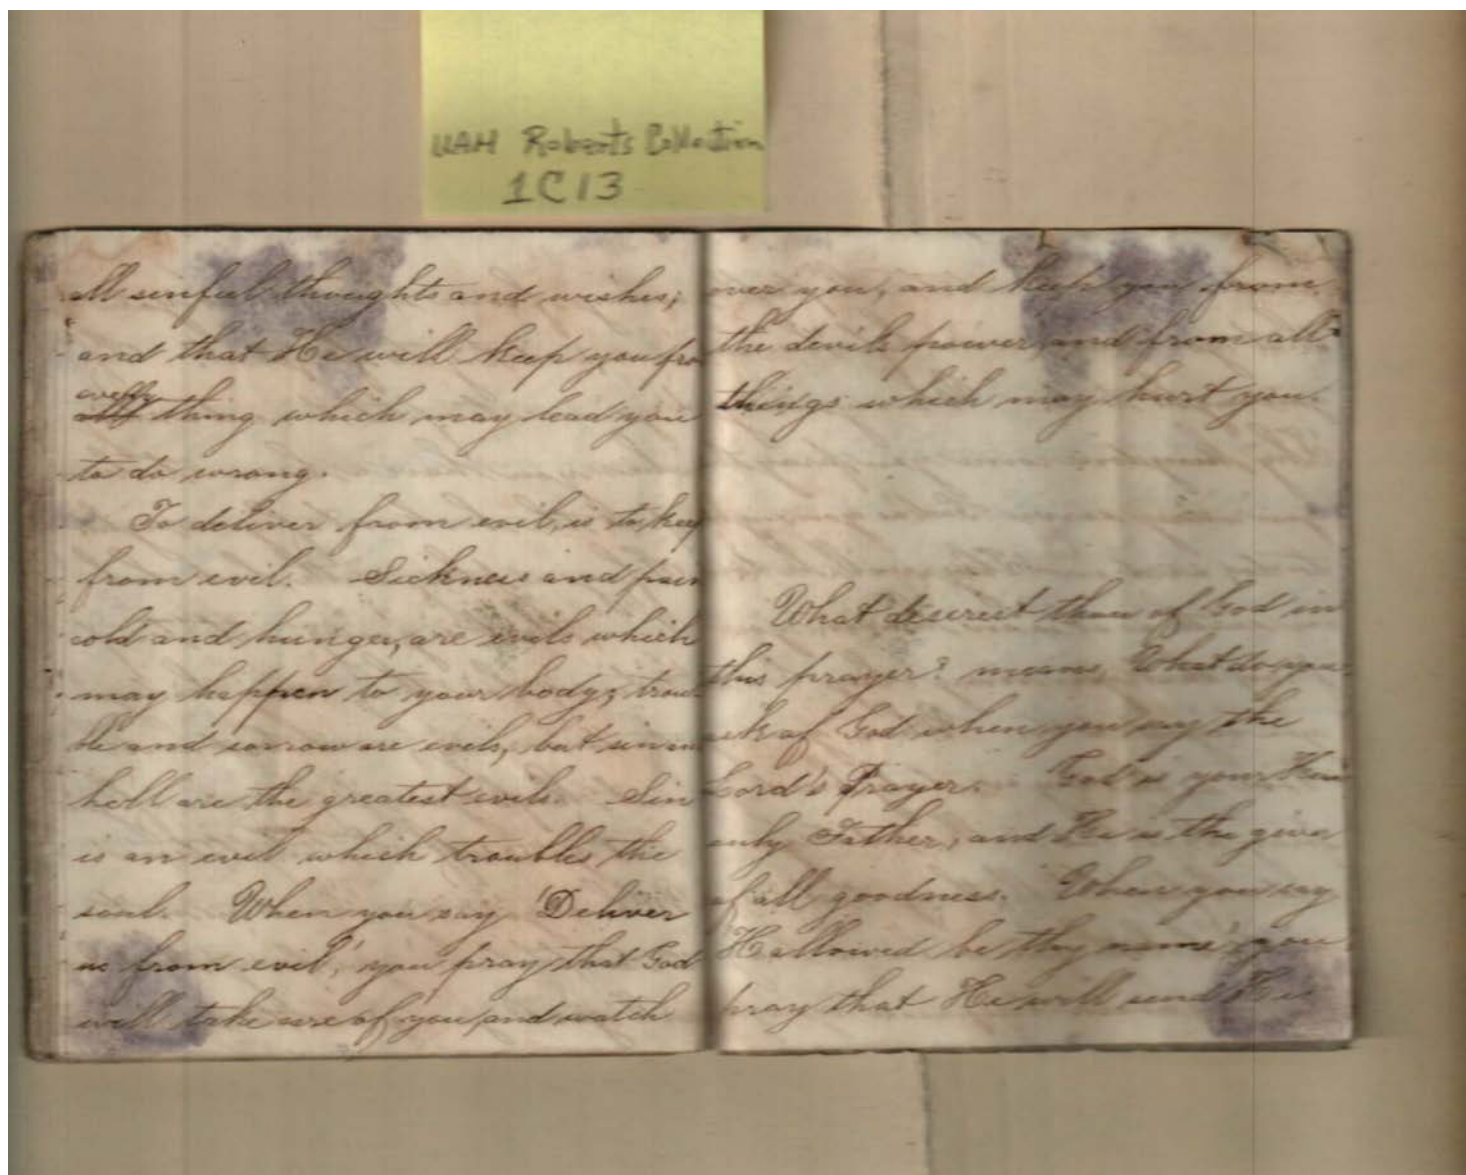 UAH Roberts Collection
1C13
all sinful thoughts and wishes;
and that He will keep you fro
every
all thing which may lead you
to do wrong.
To deliver from evil, is to keep
from evil. Sickness and pain
cold and hunger, are evils which
may happen to your body; trou
ble and sorrow are evils, but sin an
hell are the greatest evils. Sin
is an evil which troubles the
soul. When you say 'Deliver
us from evil,' you pray that God
will take care of you, and watch
over you, and keep you from
the devils power and from all
things which may hurt you.
What desirest thou of God in
this prayer? means, What do you
ask of God when you say the
Lord's Prayer. God is your Heav
enly Father, and He is the giver
of all goodness. When you say
'Hallowed be thy name' you
pray that He will send His